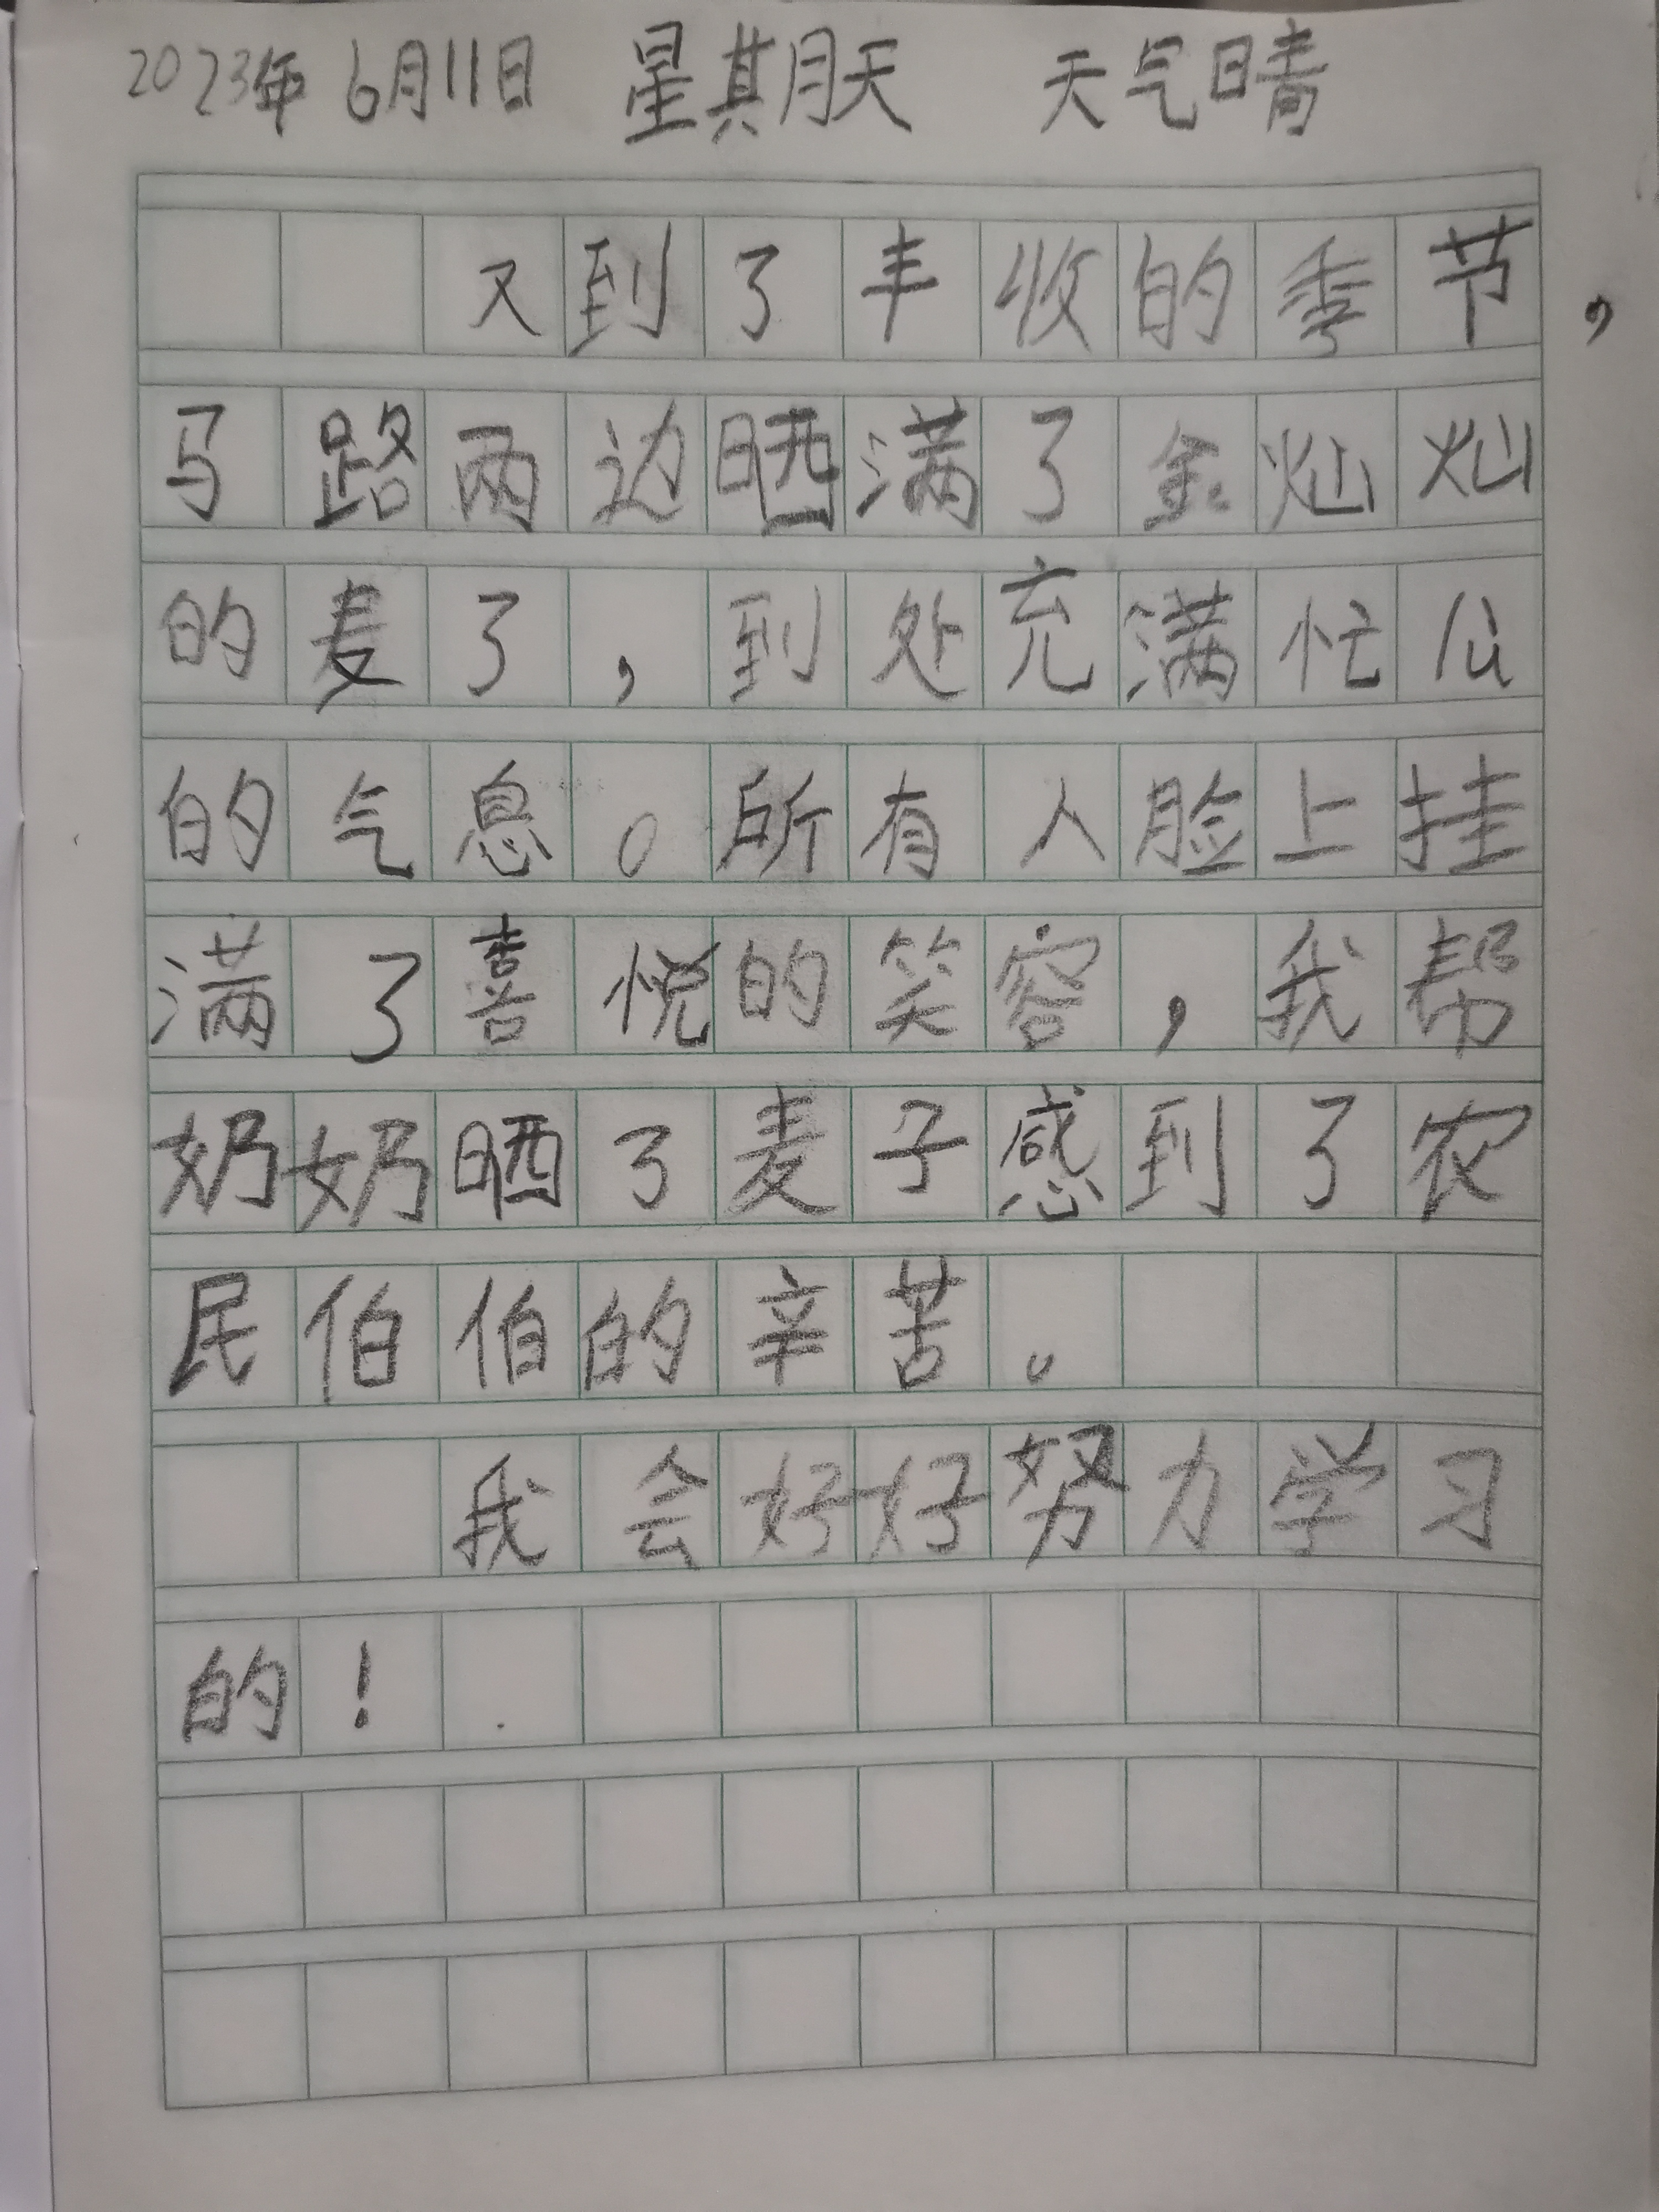 2023年 6月11日 星期天 天气晴
又到了丰收的季节，
马路两边晒满了金灿灿
的麦了，到处充满忙
的气息。所有人脸上挂
满了喜悦的笑容，我帮
奶奶晒了麦子感到了农
民伯伯的辛苦。
我会好好努力学习
的！